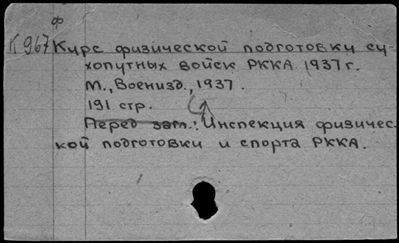 ф
К 967 Курс физической подготовки су-
хопутных войск РККА 1937 г.
М., Воениздат., 1937.
191 стр.
Перед загл.: Инспекция физичес-
кой подготовки и спорта РККА.